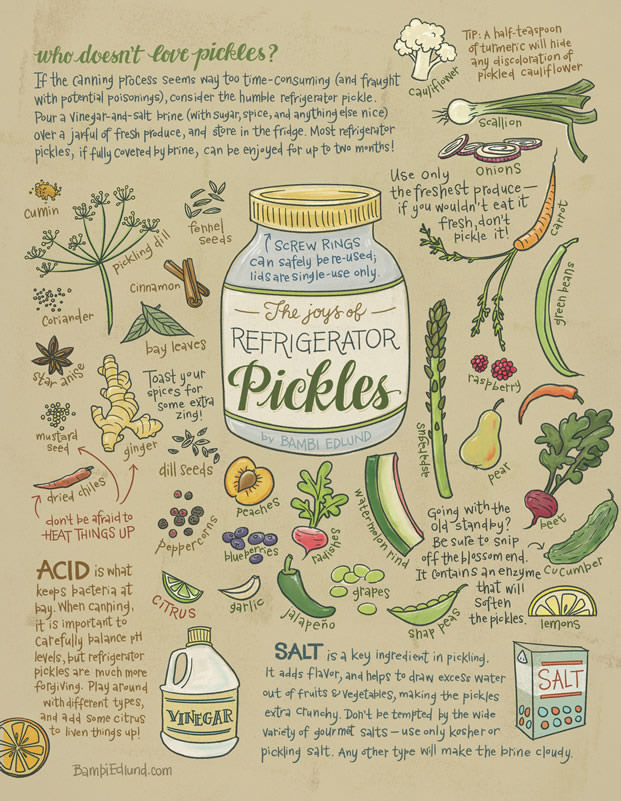 who doesn't love pickles?
If the canning process seems way too time-consuming (and fraught
with potential poisonings), consider the humble refrigerator pickle.
Pour a vinegar-and-salt brine (with sugar, spice, and anything else nice)
over a jarful of fresh produce, and store in the fridge. Most refrigerator
pickles, if fully covered by brine, can be enjoyed for up to two months!
cauliflower
TIP: A half-teaspoon
of turmeric will hide
any discoloration of
pickled cauliflower
scallion
onions
Use only
the freshest produce—
if you wouldn't eat it
fresh, don't
pickle it!
carrot
green beans
cumin
pickling dill
fennel
seeds
cinnamon
coriander
bay leaves
star anise
Toast your
spices for
some extra
zing!
mustard
seed
ginger
dill seeds
dried chiles
don't be afraid to
HEAT THINGS UP
peppercorns
SCREW RINGS
can safely be re-used;
lids are single-use only.
The joys of
REFRIGERATOR
Pickles
by BAMBI EDLUND
asparagus
raspberry
pear
beet
peaches
blueberries
radishes
watermelon rind
Going with the
old standby?
Be sure to snip
off the blossom end.
It contains an enzyme
that will
soften
the pickles.
cucumber
CITRUS
garlic
jalapeño
grapes
snap peas
lemons
ACID is what
keeps bacteria at
bay. When canning,
it is important to
carefully balance pH
levels, but refrigerator
pickles are much more
forgiving. Play around
with different types,
and add some citrus
to liven things up!
VINEGAR
SALT is a key ingredient in pickling.
It adds flavor, and helps to draw excess water
out of fruits & vegetables, making the pickles
extra crunchy. Don't be tempted by the wide
variety of gourmet salts — use only kosher or
pickling salt. Any other type will make the brine cloudy.
SALT
BambiEdlund.com